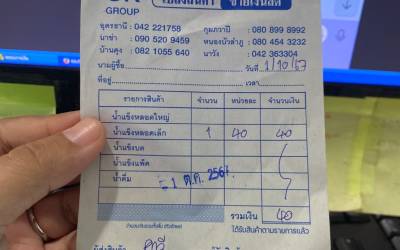 GROUP
ใบส่งสินค้า ขายเงินสด
อุดรธานี : 042 221758 กุมภวาปี : 080 899 8992
นาข่า : 090 520 9459 หนองบัวลำภู : 080 454 3232
บ้านดุง : 082 1055 640 นาวัง : 042 363304
นามผู้ซื้อ วันที่ 1/10/67
ที่อยู่ เวลา
รายการสินค้า จำนวน หน่วยละ จำนวนเงิน
น้ำแข็งหลอดใหญ่
น้ำแข็งหลอดเล็ก 1 40 40
น้ำแข็งบด
น้ำแข็งแพ็ค
น้ำดื่ม - 1 ต.ค. 2567
รวมเงิน 40
ได้รับสินค้าตามรายการแล้ว